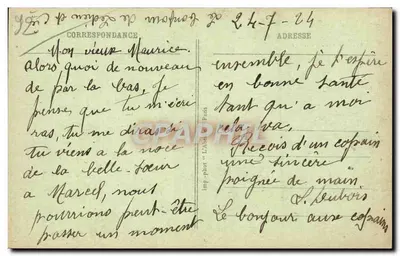 Le bonjour de Lucien et
24-7-24
CORRESPONDANCE
ADRESSE
Mon vieux Maurice
Alors quoi de nouveau
de par la bas, Je
pense que tu m'écri
ras, tu me diras si
tu viens a la noce
de la belle-sœur
a Marcel, nous
pourrions peut-être
passer un moment
ensemble, je t'espère
en bonne santé
tant qu'a moi
cela va.
Recois d'un copain
une sincère
poignée de main
S. Dubois
Le bonjour aux copains